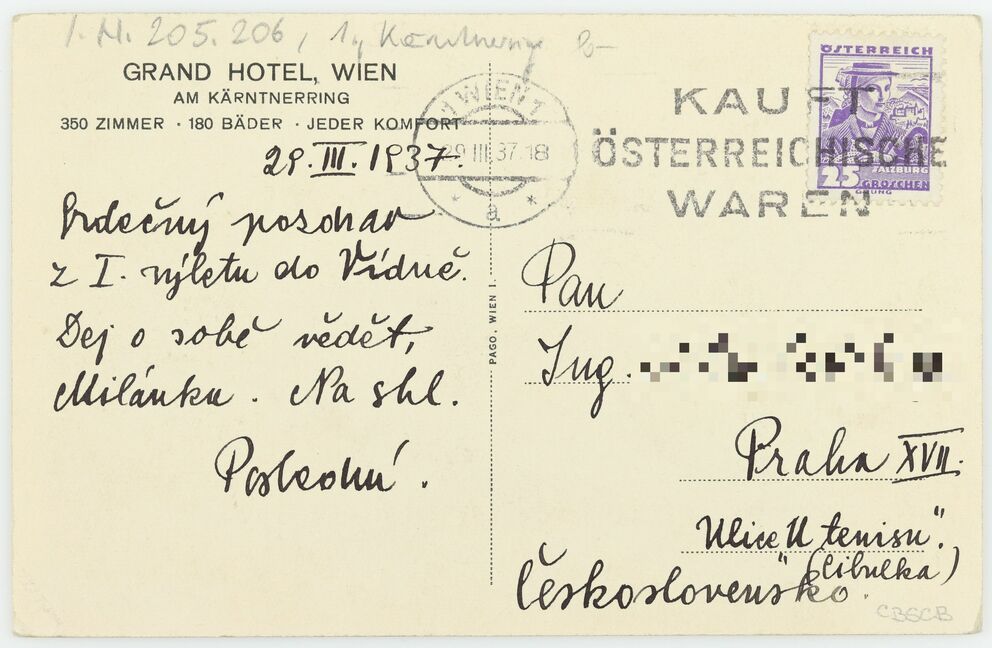 I.N. 205.206, 1., Kärntnerring
GRAND HOTEL, WIEN
AM KÄRNTNERRING
350 ZIMMER · 180 BÄDER · JEDER KOMFORT
29. III. 1937.
Srdečný pozdrav
z I. výletu do Vídně.
Dej o sobě vědět,
Milánku. Na shl.
Poslední.
PAGO, WIEN I.
WIEN 1
29 III 37.18
* a *
KAUFT
ÖSTERREICHISCHE
WAREN
ÖSTERREICH
SALZBURG
25 GROSCHEN
Pan
Ing.
Praha XVII.
Ulice „U tenisu“.
(Cibulka)
Československo.
CBSCB